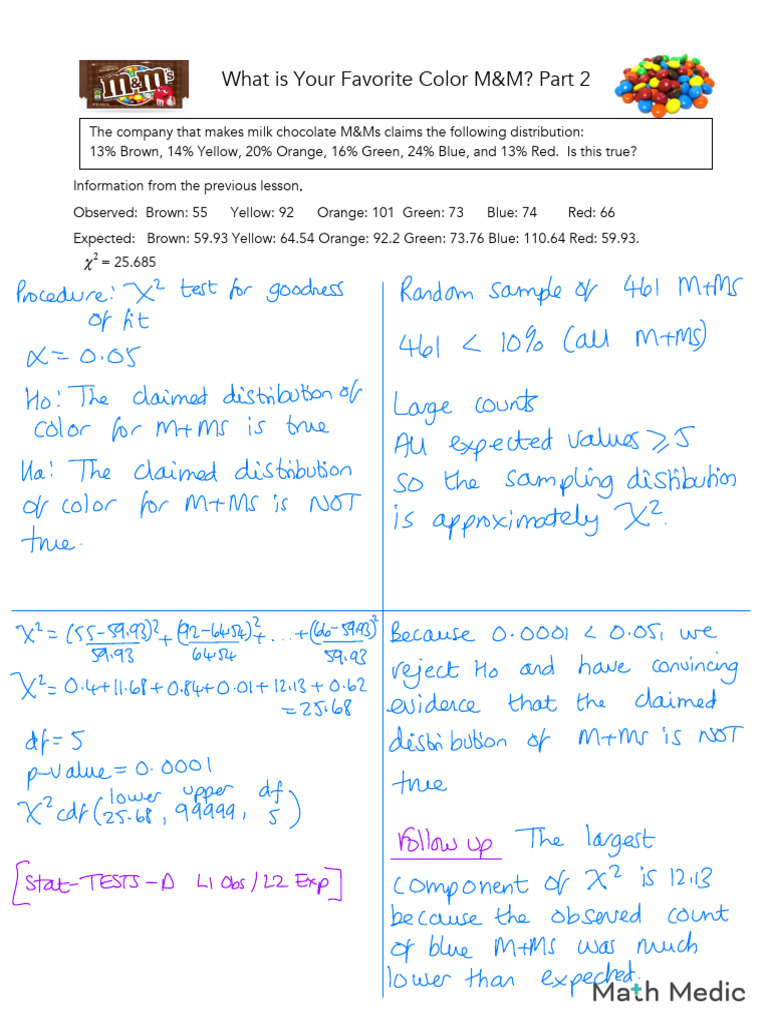 m&m's
What is Your Favorite Color M&M? Part 2
The company that makes milk chocolate M&Ms claims the following distribution:
13% Brown, 14% Yellow, 20% Orange, 16% Green, 24% Blue, and 13% Red. Is this true?
Information from the previous lesson.
Observed: Brown: 55 Yellow: 92 Orange: 101 Green: 73 Blue: 74 Red: 66
Expected: Brown: 59.93 Yellow: 64.54 Orange: 92.2 Green: 73.76 Blue: 110.64 Red: 59.93.
χ² = 25.685
Procedure: χ² test for goodness
of fit
α = 0.05
Ho: The claimed distribution of
color for M+Ms is true
Ha: The claimed distribution
of color for M+Ms is NOT
true.
Random sample of 461 M+Ms
461 < 10% (all M+Ms)
Large counts
All expected values ≥ 5
so the sampling distribution
is approximately χ².
χ² = (55-59.93)²/59.93 + (92-64.54)²/64.54 + ... + (66-59.93)²/59.93
χ² = 0.4+11.68+0.84+0.01+12.13+0.62
= 25.68
df = 5
p-value = 0.0001
lower upper df
χ²cdf(25.68, 99999, 5)
[Stat-TESTS-D L1 Obs/L2 Exp]
Because 0.0001 < 0.05, we
reject Ho and have convincing
evidence that the claimed
distribution of M+Ms is NOT
true
Follow up The largest
component of χ² is 12.13
because the observed count
of blue M+Ms was much
lower than expected.
Math Medic